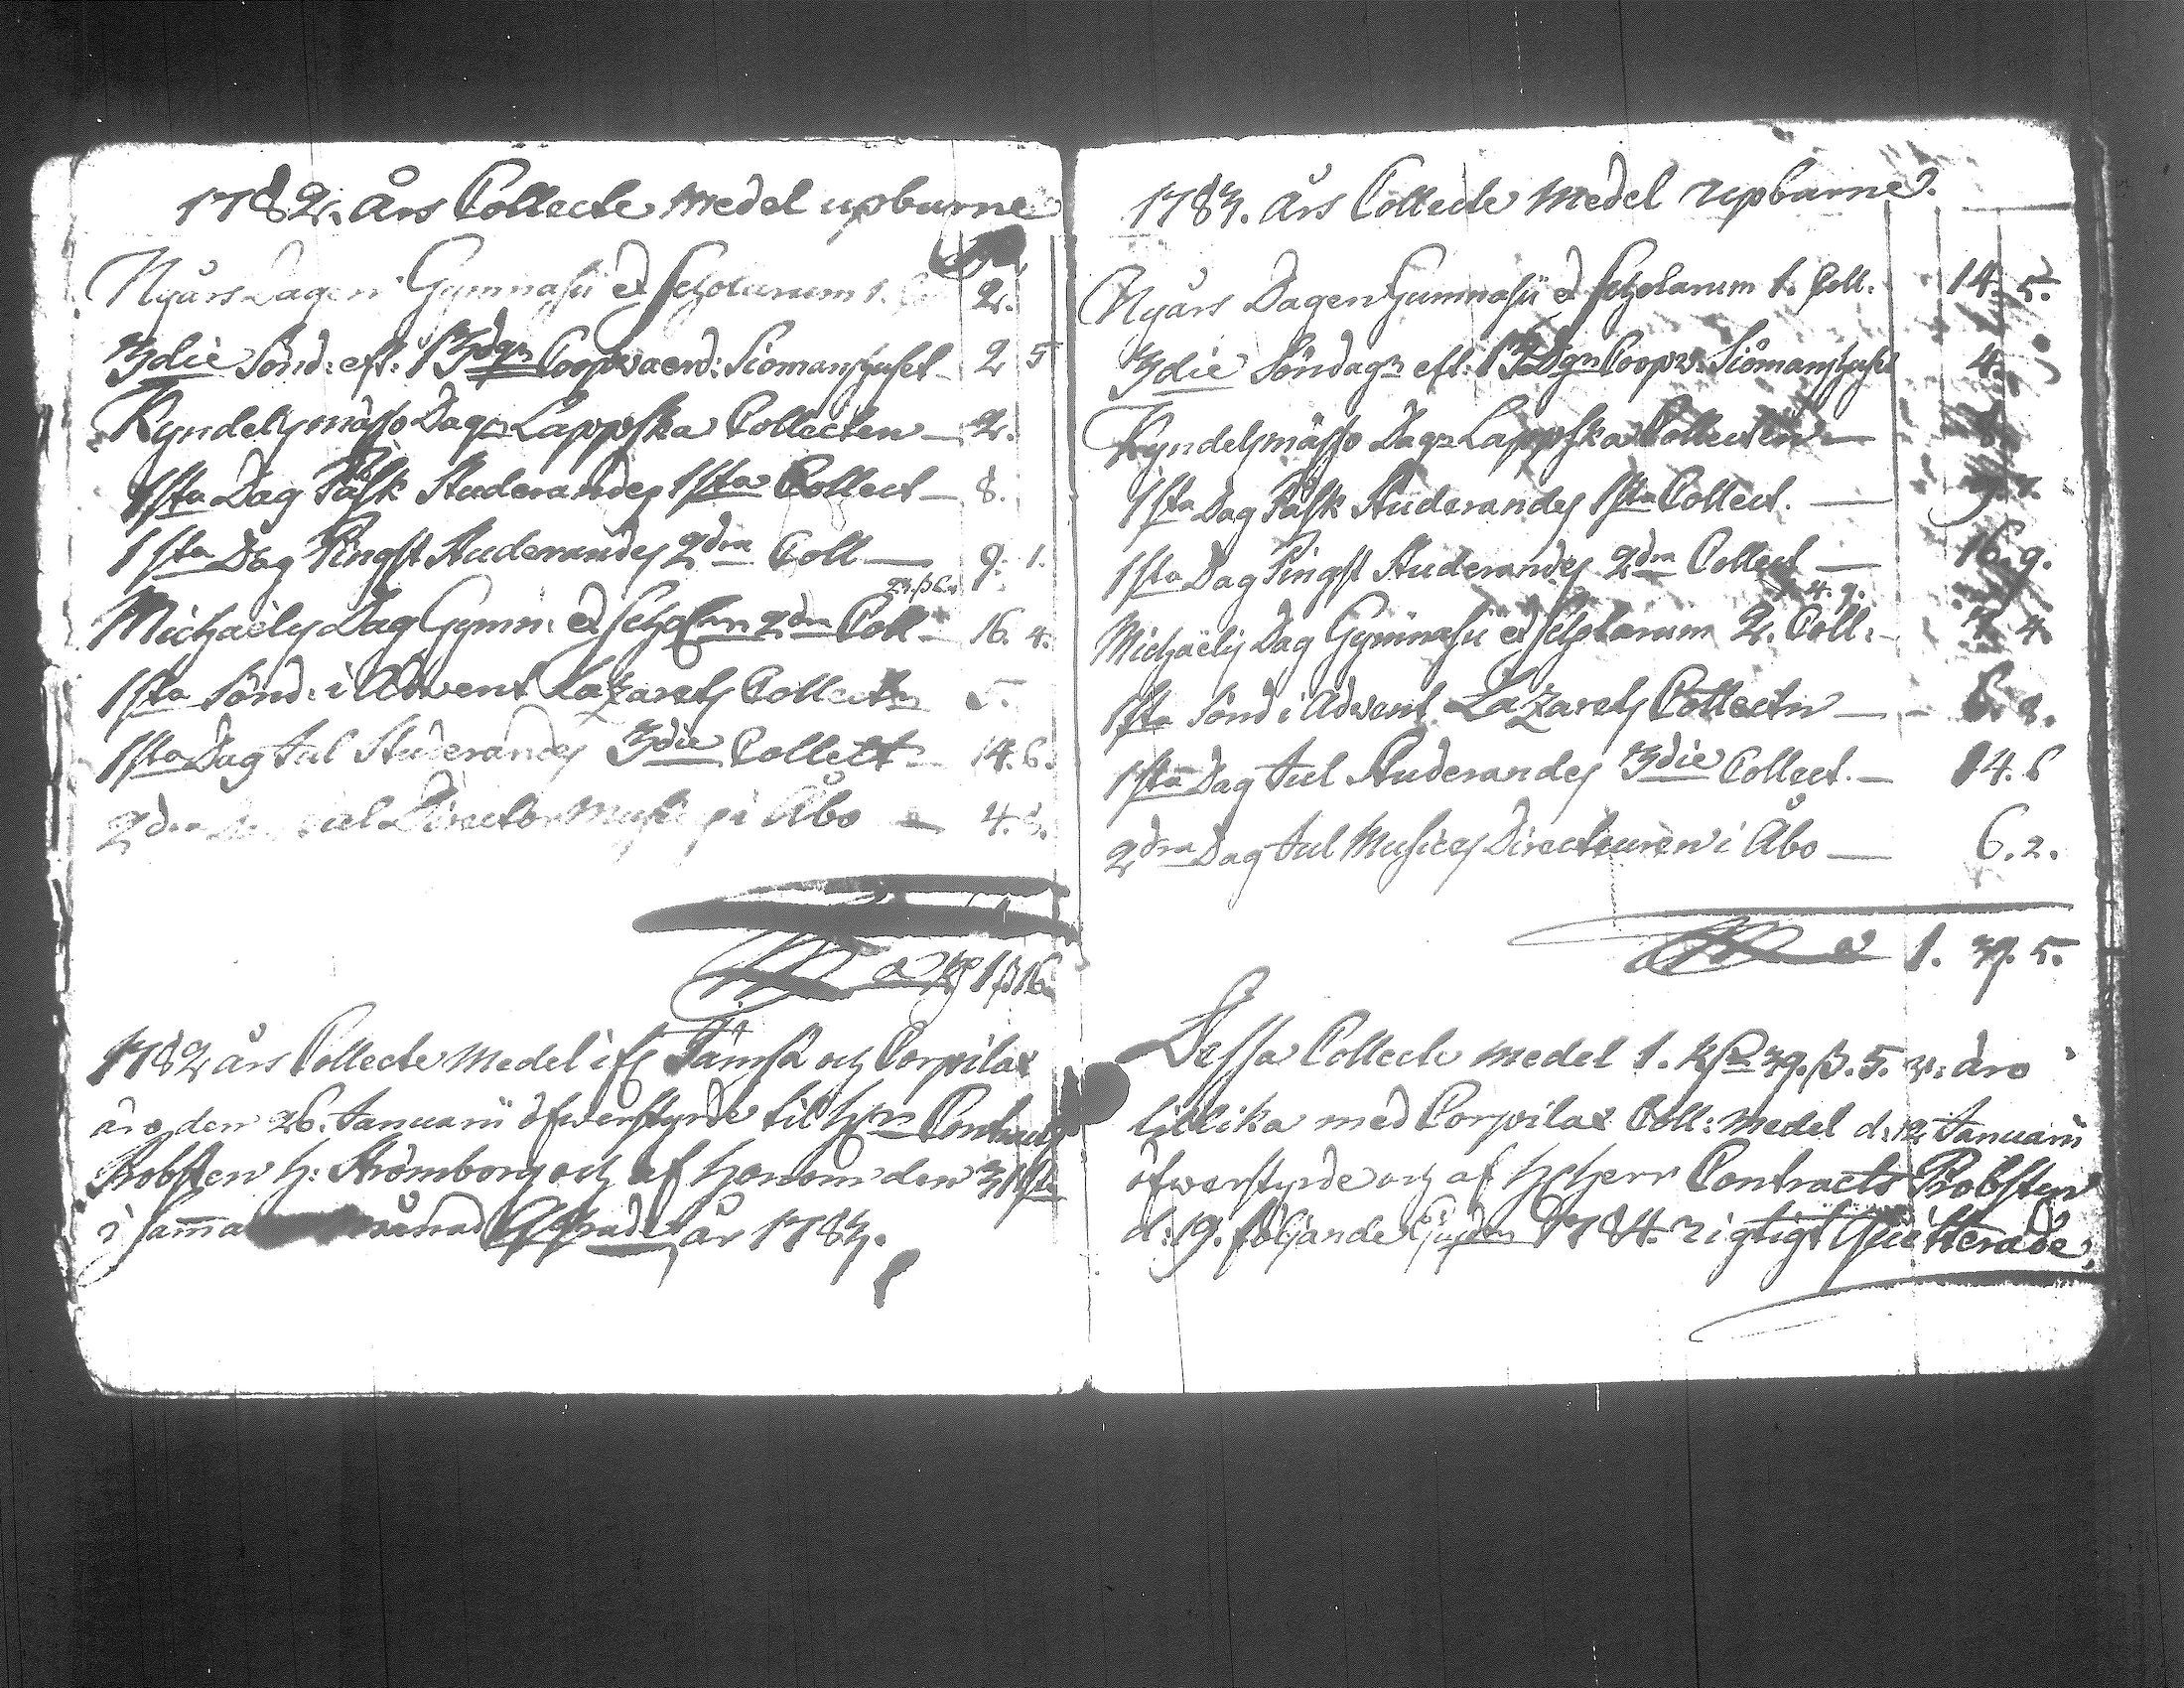 1782. Års Collecte Medel upburne
Nyårs Dagen Gymnasii et Scholarum 1. 2.
3die Sönd: eft: 13dgn Coopvaerd: Siömanshuset 2 5
Kyndelsmässo Dagn Lappska Collecten – 2.
1sta Dag Påsk Studerandes 1sta Collect – 8.
1sta Dag Pingst Studerandes 2dra Coll – 9. 1.
Michaëlis Dag Gymn: et Scholarn 2dra Coll – 16. 4.
1sta Sönd: i Advent Lazarets Collectn 5.
1sta Dag Jul Studerandes 3die Collect – 14. 6.
2dra Jul Director Musices i Åbo – 4. 8.
1 ß 16
1782 års Collecte Medel ifr Jämsä och Corpilax
äro den 26. Januarii öfwerstyrde til Hrn Contracts
Probsten H: Strömborg och af honom den 31sta
i samma månad år 1783.
1783. Års Collecte Medel Upburne.
Nyårs Dagen Gymnasii et Scholarum 1. Coll. 14. 5.
3die Söndagn eft: 13Dgn Coopv: Siömanshuset 4.
Kyndelsmässo Dagn Lappska Collecten – 8.
1sta Dag Påsk Studerandes 1sta Collect. – 9. 1.
1sta Dag Pingst Studerandes 2dra Collect – 16. 9.
4. 9.
Michaëlis Dag Gymnasii et Scholarum 2. Coll: – 7. 4.
1sta Sönd i Advent Lazarets Collectn – 6. 8.
1sta Dag Jul Studerandes 3die Collect. – 14. 6
2dra Dag Jul Musices Directeuren i Åbo – 6. 2.
1. 39. 5.
Dessa Collecte Medel 1. Rd 39. ß. 5. r: äro
tillika med Corpilax Coll: Medel d: 12 Januarii
öfwerstyrde och af H Herr Contracts Probsten
d: 19. följande 1784. rigtigt Quitterade.